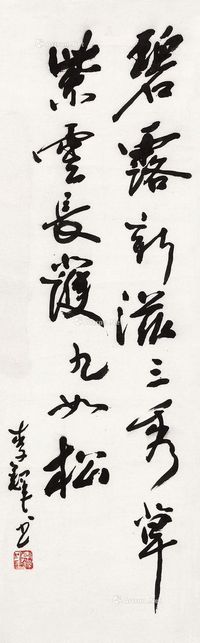 碧露新滋三秀草
紫云長護九如松
李鐸书